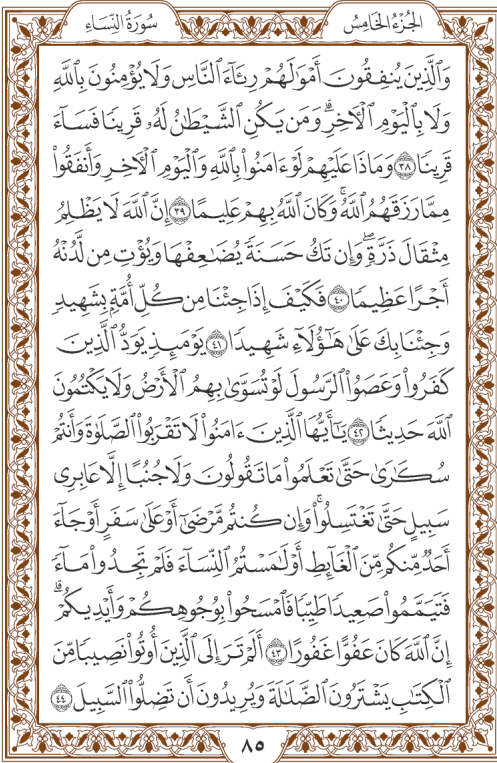 الجُزْءُ الخَامِسُ
سُورَةُ النِّسَاءِ
وَالَّذِينَ يُنفِقُونَ أَمْوَٰلَهُمْ رِئَآءَ النَّاسِ وَلَا يُؤْمِنُونَ بِاللَّهِ
وَلَا بِالْيَوْمِ الْأَخِرِ ۗ وَمَن يَكُنِ الشَّيْطَٰنُ لَهُۥ قَرِينًا فَسَآءَ
قَرِينًا ٣٨ وَمَاذَا عَلَيْهِمْ لَوْ ءَامَنُوا۟ بِاللَّهِ وَالْيَوْمِ الْأَخِرِ وَأَنفَقُوا۟
مِمَّا رَزَقَهُمُ اللَّهُ ۚ وَكَانَ اللَّهُ بِهِمْ عَلِيمًا ٣٩ إِنَّ اللَّهَ لَا يَظْلِمُ
مِثْقَالَ ذَرَّةٍ ۖ وَإِن تَكُ حَسَنَةً يُضَٰعِفْهَا وَيُؤْتِ مِن لَّدُنْهُ
أَجْرًا عَظِيمًا ٤٠ فَكَيْفَ إِذَا جِئْنَا مِن كُلِّ أُمَّةٍۭ بِشَهِيدٍ
وَجِئْنَا بِكَ عَلَىٰ هَٰٓؤُلَآءِ شَهِيدًا ٤١ يَوْمَئِذٍ يَوَدُّ الَّذِينَ
كَفَرُوا۟ وَعَصَوُا۟ الرَّسُولَ لَوْ تُسَوَّىٰ بِهِمُ الْأَرْضُ وَلَا يَكْتُمُونَ
اللَّهَ حَدِيثًا ٤٢ يَٰٓأَيُّهَا الَّذِينَ ءَامَنُوا۟ لَا تَقْرَبُوا۟ الصَّلَوٰةَ وَأَنتُمْ
سُكَٰرَىٰ حَتَّىٰ تَعْلَمُوا۟ مَا تَقُولُونَ وَلَا جُنُبًا إِلَّا عَابِرِى
سَبِيلٍ حَتَّىٰ تَغْتَسِلُوا۟ ۚ وَإِن كُنتُم مَّرْضَىٰٓ أَوْ عَلَىٰ سَفَرٍ أَوْ جَآءَ
أَحَدٌ مِّنكُم مِّنَ الْغَآئِطِ أَوْ لَٰمَسْتُمُ النِّسَآءَ فَلَمْ تَجِدُوا۟ مَآءً
فَتَيَمَّمُوا۟ صَعِيدًا طَيِّبًا فَامْسَحُوا۟ بِوُجُوهِكُمْ وَأَيْدِيكُمْ ۗ
إِنَّ اللَّهَ كَانَ عَفُوًّا غَفُورًا ٤٣ أَلَمْ تَرَ إِلَى الَّذِينَ أُوتُوا۟ نَصِيبًا مِّنَ
الْكِتَٰبِ يَشْتَرُونَ الضَّلَٰلَةَ وَيُرِيدُونَ أَن تَضِلُّوا۟ السَّبِيلَ ٤٤
٨٥